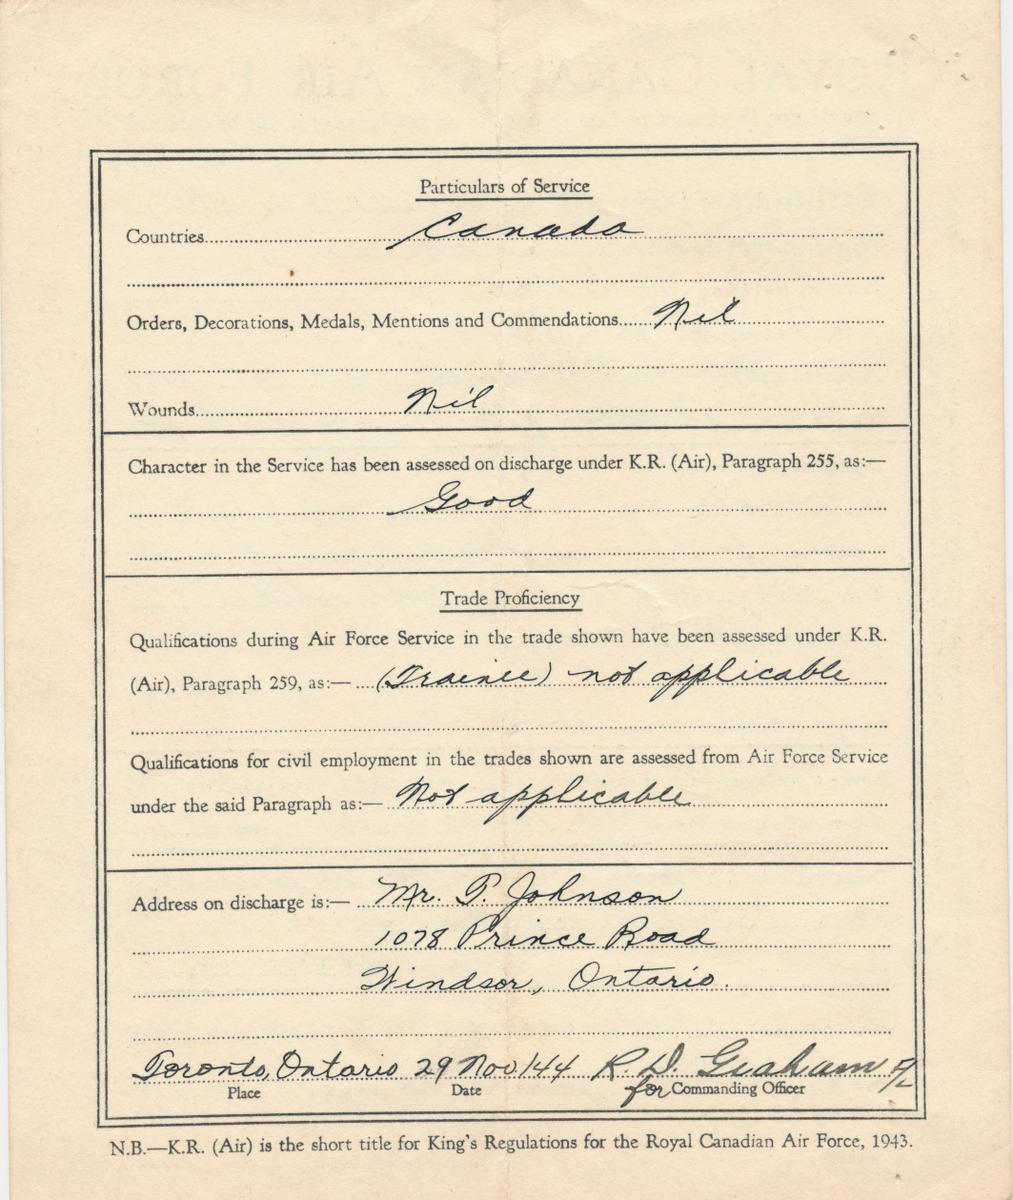 Particulars of Service
Countries Canada
Orders, Decorations, Medals, Mentions and Commendations Nil
Wounds Nil
Character in the Service has been assessed on discharge under K.R. (Air), Paragraph 255, as:—
Good
Trade Proficiency
Qualifications during Air Force Service in the trade shown have been assessed under K.R.
(Air), Paragraph 259, as:— (Trainee) not applicable
Qualifications for civil employment in the trades shown are assessed from Air Force Service
under the said Paragraph as:— Not applicable
Address on discharge is:— Mr. T. Johnson
1078 Prince Road
Windsor, Ontario.
Toronto, Ontario 29 Nov/44 R. D. Graham F/L
Place Date for Commanding Officer
N.B.—K.R. (Air) is the short title for King's Regulations for the Royal Canadian Air Force, 1943.